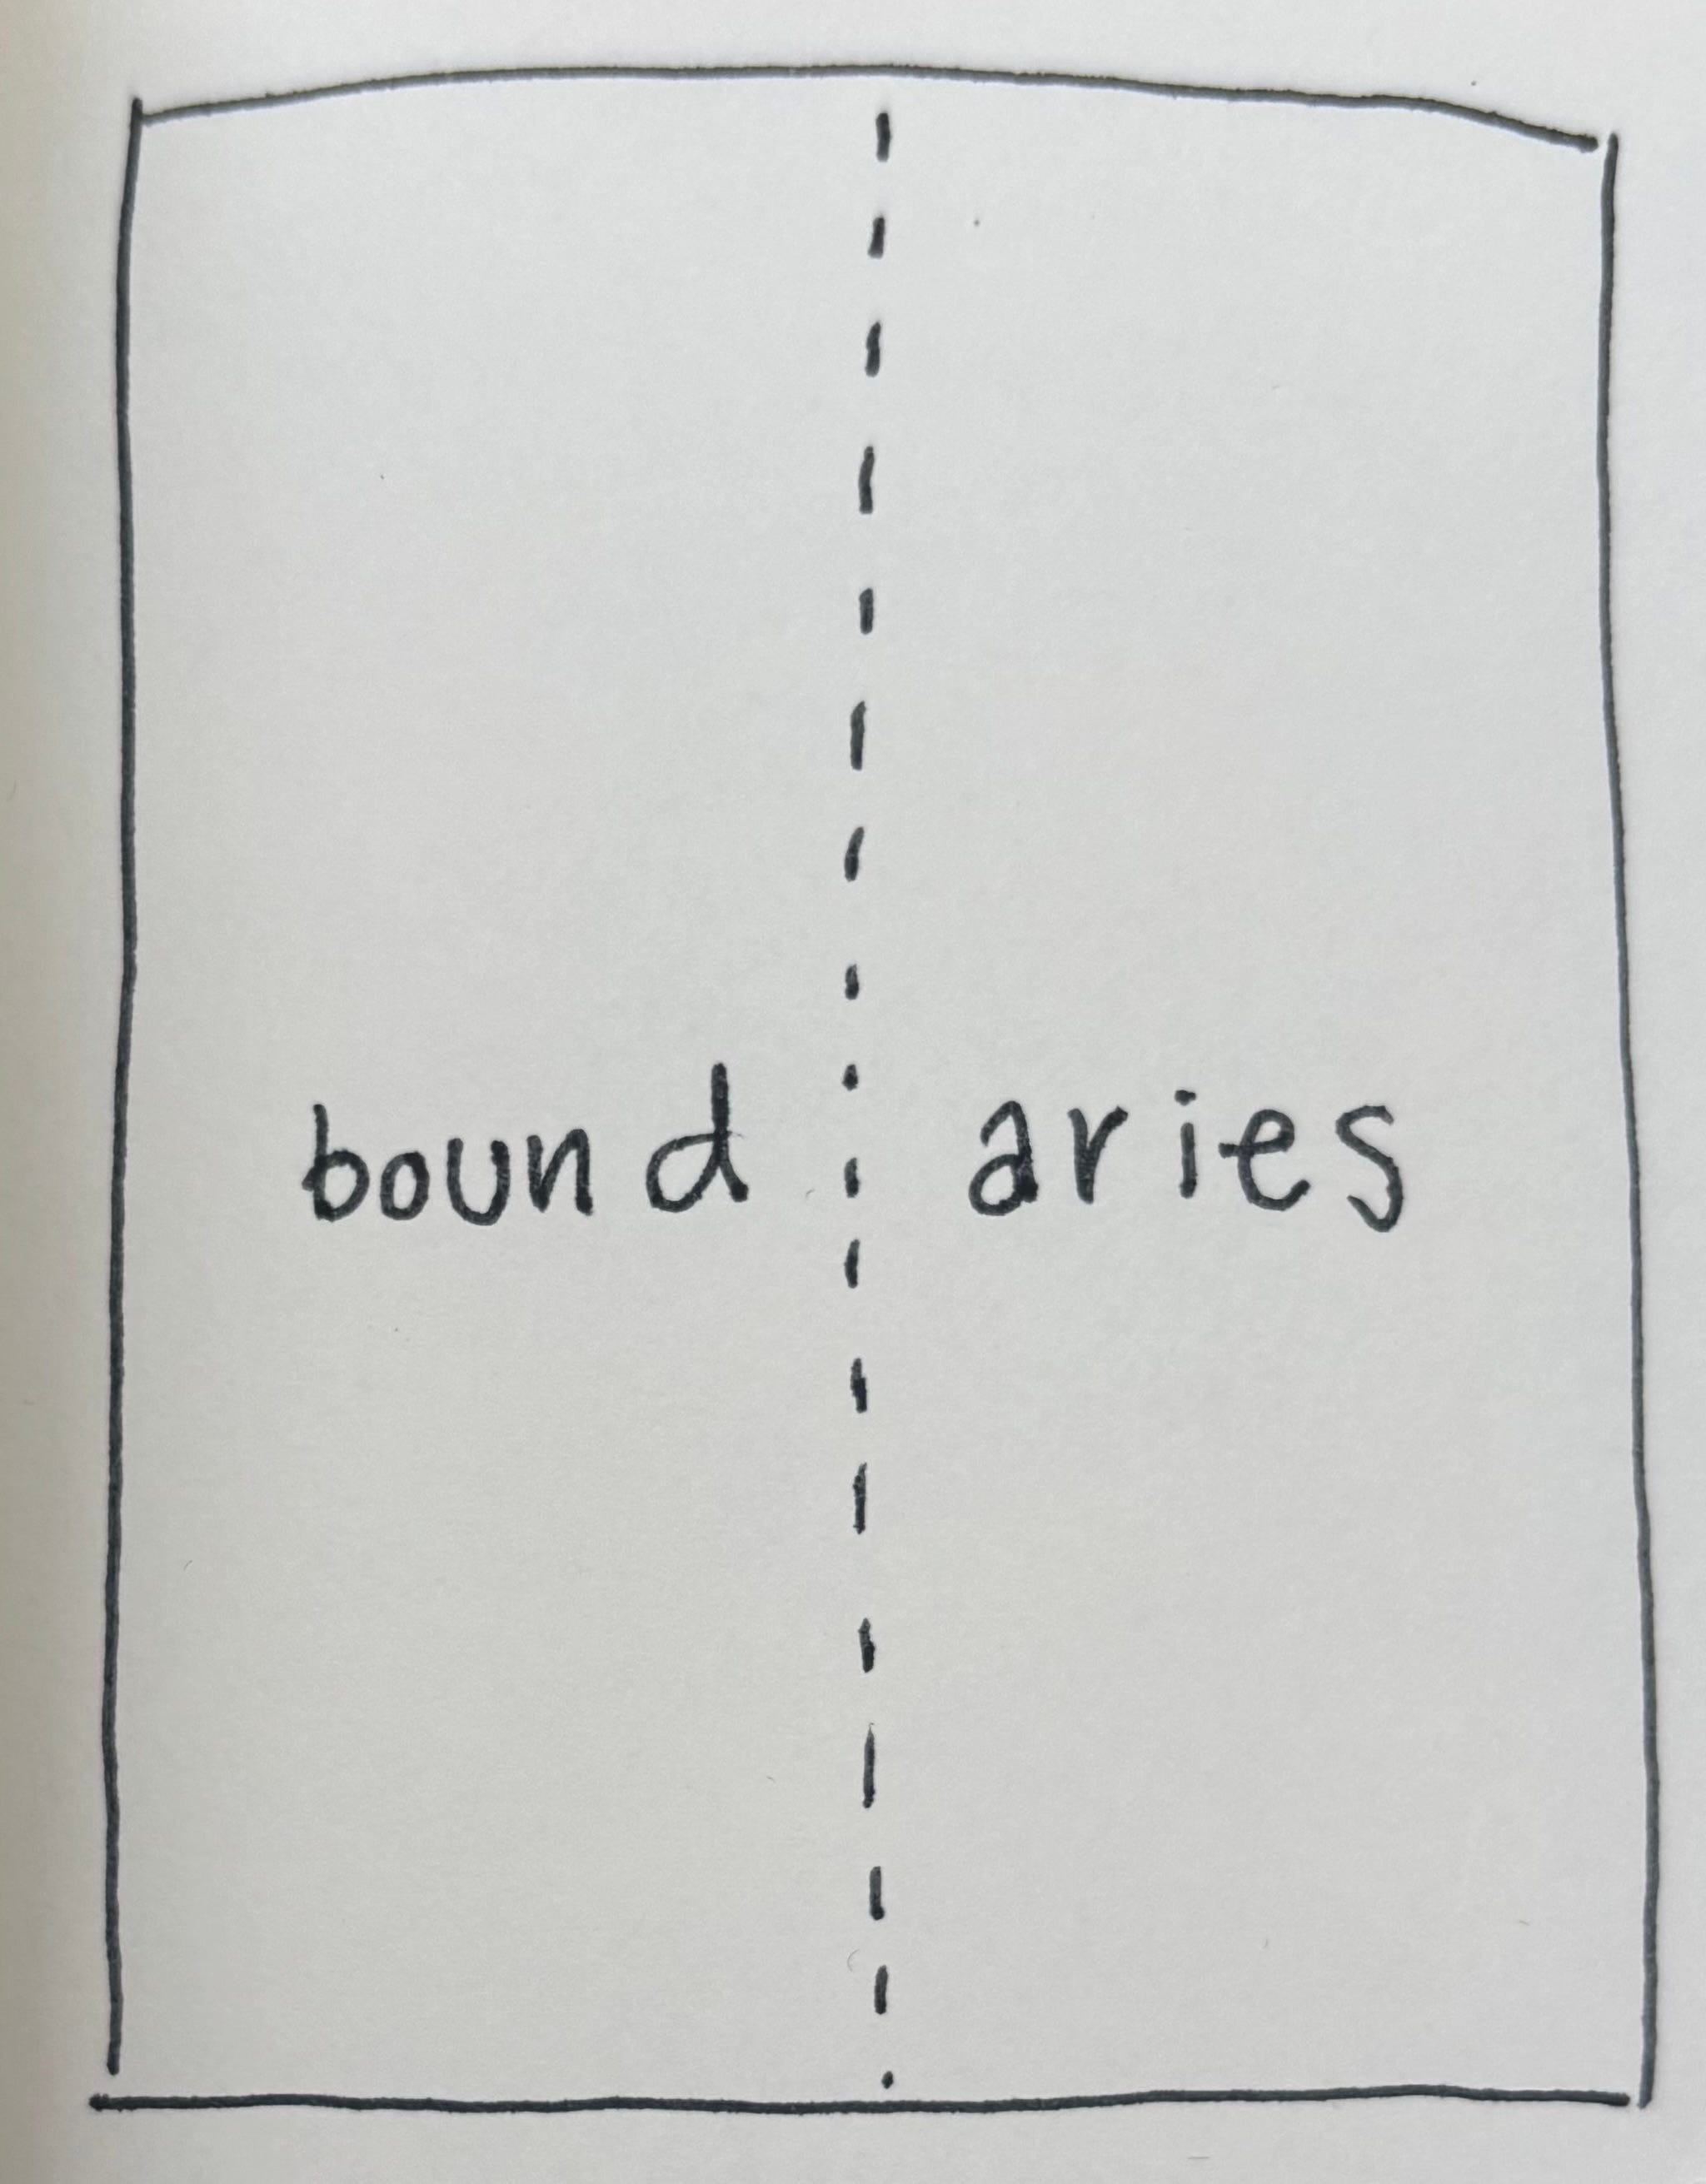 bound aries